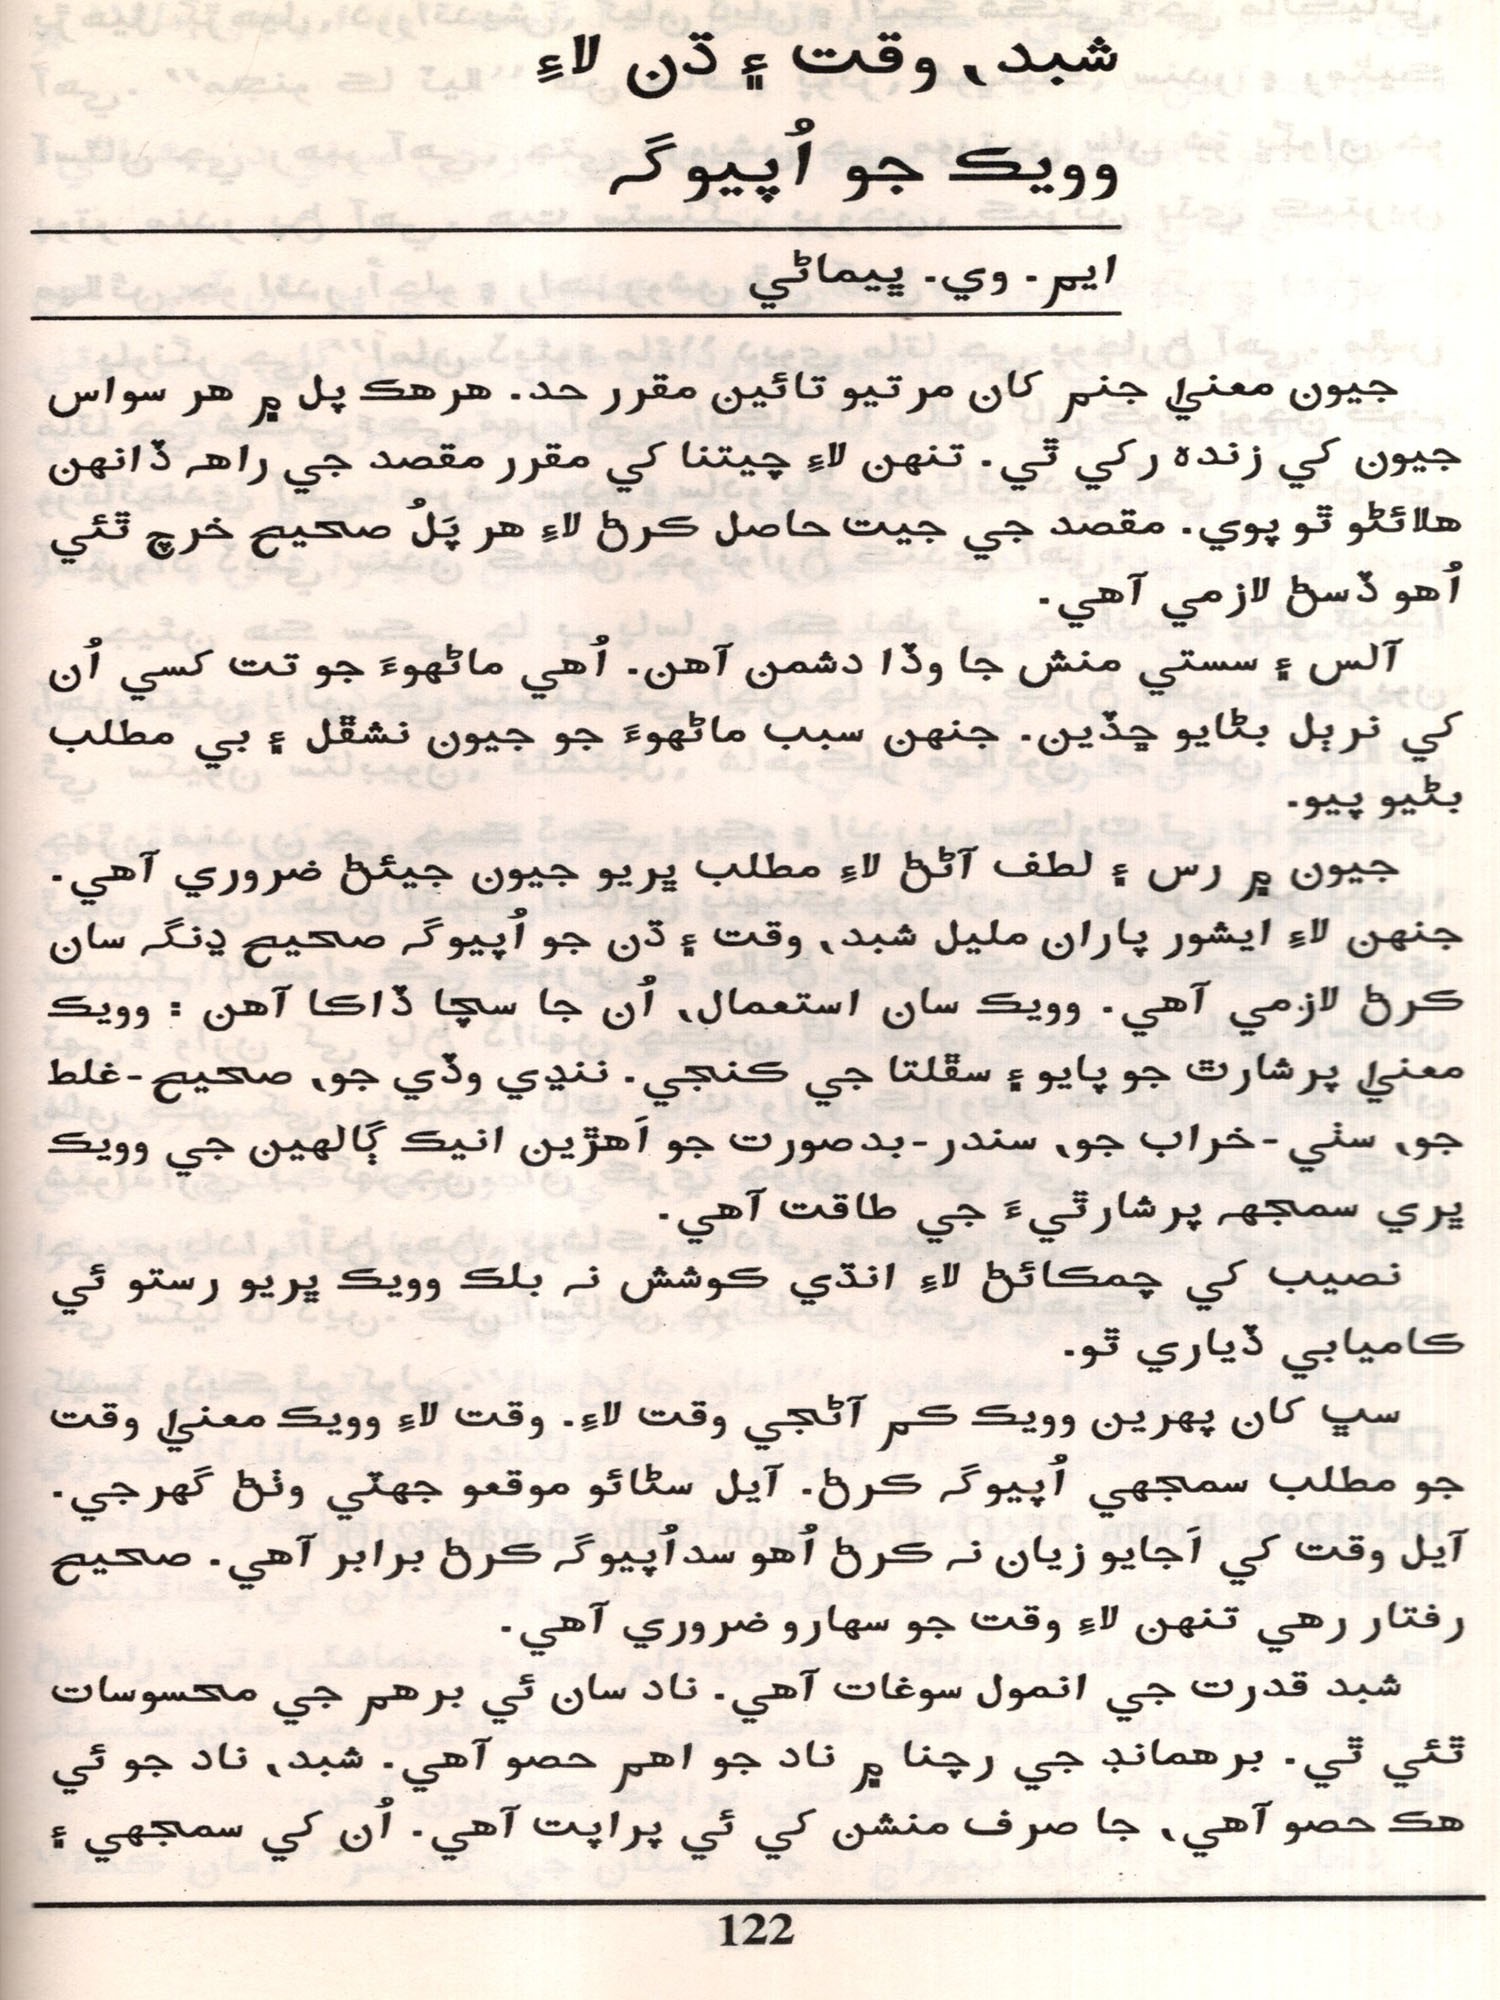 شبد، وقت ۽ ڌن لاءِ
وويڪ جو اُپيوگہ
ايم. وي. ڀيماڻي
جيون معنيٰ جنم کان مرتيو تائين مقرر حد. هرهڪ پل ۾ هر سواس
جيون کي زنده رکي ٿي. تنهن لاءِ چيتنا کي مقرر مقصد جي راهہ ڏانهن
هلائڻو ٿو پوي. مقصد جي جيت حاصل ڪرڻ لاءِ هر پَلُ صحيح خرچ ٿئي
اُهو ڏسڻ لازمي آهي.
آلس ۽ سستي منش جا وڏا دشمن آهن. اُهي ماڻهوءَ جو تت کسي اُن
کي نرٻل بڻايو ڇڏين. جنهن سبب ماڻهوءَ جو جيون نشڦل ۽ بي مطلب
بڻيو پيو.
جيون ۾ رس ۽ لطف آڻڻ لاءِ مطلب ڀريو جيون جيئڻ ضروري آهي.
جنهن لاءِ ايشور پاران مليل شبد، وقت ۽ ڌن جو اُپيوگہ صحيح ڍنگہ سان
ڪرڻ لازمي آهي. وويڪ سان استعمال، اُن جا سچا ڏاڪا آهن : وويڪ
معنيٰ پرشارٿ جو پايو ۽ سڦلتا جي ڪنجي. ننڍي وڏي جو، صحيح-غلط
جو، سٺي-خراب جو، سندر-بدصورت جو اَهڙين انيڪ ڳالهين جي وويڪ
ڀري سمجهہ پرشارٿيءَ جي طاقت آهي.
نصيب کي چمڪائڻ لاءِ انڌي ڪوشش نہ بلڪ وويڪ ڀريو رستو ئي
ڪاميابي ڏياري ٿو.
سڀ کان پهرين وويڪ ڪم آڻجي وقت لاءِ. وقت لاءِ وويڪ معنيٰ وقت
جو مطلب سمجهي اُپيوگہ ڪرڻ. آيل سٺائو موقعو جهٽي وٺڻ گهرجي.
آيل وقت کي اَجايو زيان نہ ڪرڻ اُهو سداُپيوگہ ڪرڻ برابر آهي. صحيح
رفتار رهي تنهن لاءِ وقت جو سهارو ضروري آهي.
شبد قدرت جي انمول سوغات آهي. ناد سان ئي برهم جي محسوسات
ٿئي ٿي. برهمانڊ جي رچنا ۾ ناد جو اهم حصو آهي. شبد، ناد جو ئي
هڪ حصو آهي، جا صرف منشن کي ئي پراپت آهي. اُن کي سمجهي ۽
122